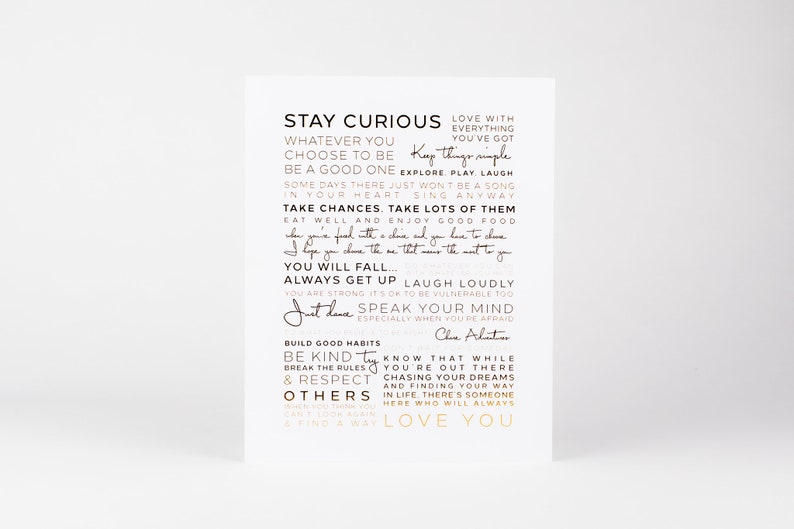 STAY CURIOUS
LOVE WITH
EVERYTHING
YOU'VE GOT
WHATEVER YOU
CHOOSE TO BE
BE A GOOD ONE
Keep things simple
EXPLORE. PLAY. LAUGH
SOME DAYS THERE JUST WON'T BE A SONG
IN YOUR HEART. SING ANYWAY
TAKE CHANCES. TAKE LOTS OF THEM
EAT WELL AND ENJOY GOOD FOOD
when you're faced with a choice and you have to choose
I hope you choose the one that means the most to you
YOU WILL FALL...
ALWAYS GET UP
DO WHATEVER YOU CAN
WITH WHATEVER YOU HAVE
LAUGH LOUDLY
YOU ARE STRONG. IT'S OK TO BE VULNERABLE TOO
Just dance
SPEAK YOUR MIND
ESPECIALLY WHEN YOU'RE AFRAID
DO WHAT YOU BELIEVE TO BE RIGHT
Chase Adventures
BUILD GOOD HABITS
DON'T WAIT FOR SOMEDAY
BE KIND try
BREAK THE RULES
& RESPECT
OTHERS
WHEN YOU THINK YOU
CAN'T, LOOK AGAIN
& FIND A WAY
KNOW THAT WHILE
YOU'RE OUT THERE
CHASING YOUR DREAMS
AND FINDING YOUR WAY
IN LIFE, THERE'S SOMEONE
HERE WHO WILL ALWAYS
LOVE YOU